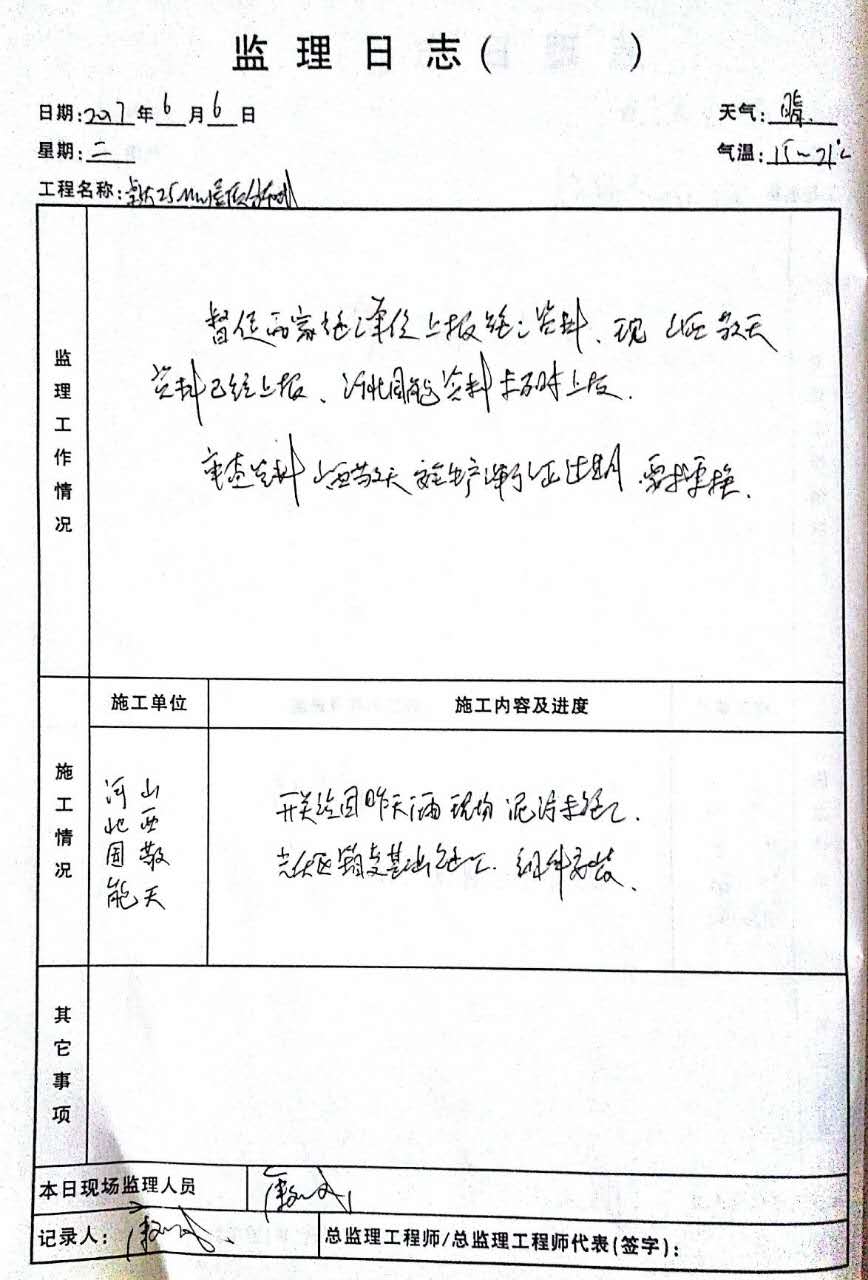 监理日志( )
日期:2017年6月6日 天气:晴.
星期:二 气温:15～21℃
工程名称:25MW屋顶分布式
监理工作情况
督促两家施工单位上报施工资料、现山西敬天
资料已经上报、河北国能资料未及时上报.
审查资料山西敬天安全生产许可证过期.要求更换.
施工情况
施工单位 施工内容及进度
河北国能
山西敬天
开关站因昨天下雨现场泥泞未施工.
光伏区箱变基础施工.组件安装.
其它事项
本日现场监理人员
记录人:
总监理工程师/总监理工程师代表(签字):